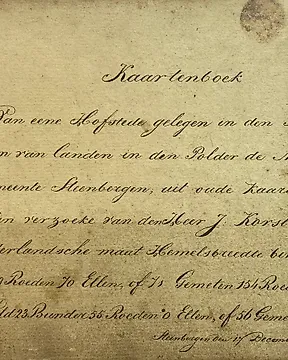 Kaartenboek
Van eene Hofstede gelegen in den
van landen in den Polder de
meente Steenbergen, uit oude kaar
verzoeke van den Heer J. Korst
derlandsche maat Hemelsbreedte
Roeden 70 Ellen, of 71 Gemeten 154 Roe
23 Bunder 55 Roeden 0 Ellen, of 56 Gem
Steenbergen den 17 Decem